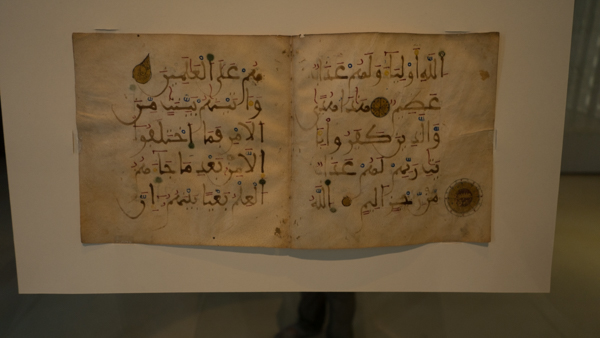 الله أولياء ولهم عذاب
عظيم هذا هدى
والذين كفروا بايا
ت ربهم لهم عذاب
من رجز اليم الله
هم على العلمين
وءاتينهم بينت من
الامر فما اختلفوا
الا من بعد ما جاءهم
العلم بغيا بينهم ان